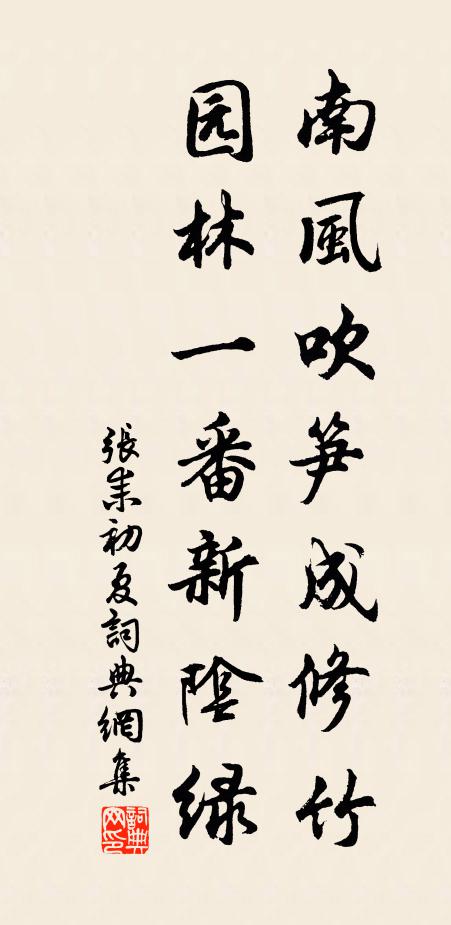 南風吹笋成修竹
园林一番新陰绿
張耒初夏詞典網集
詞典網印